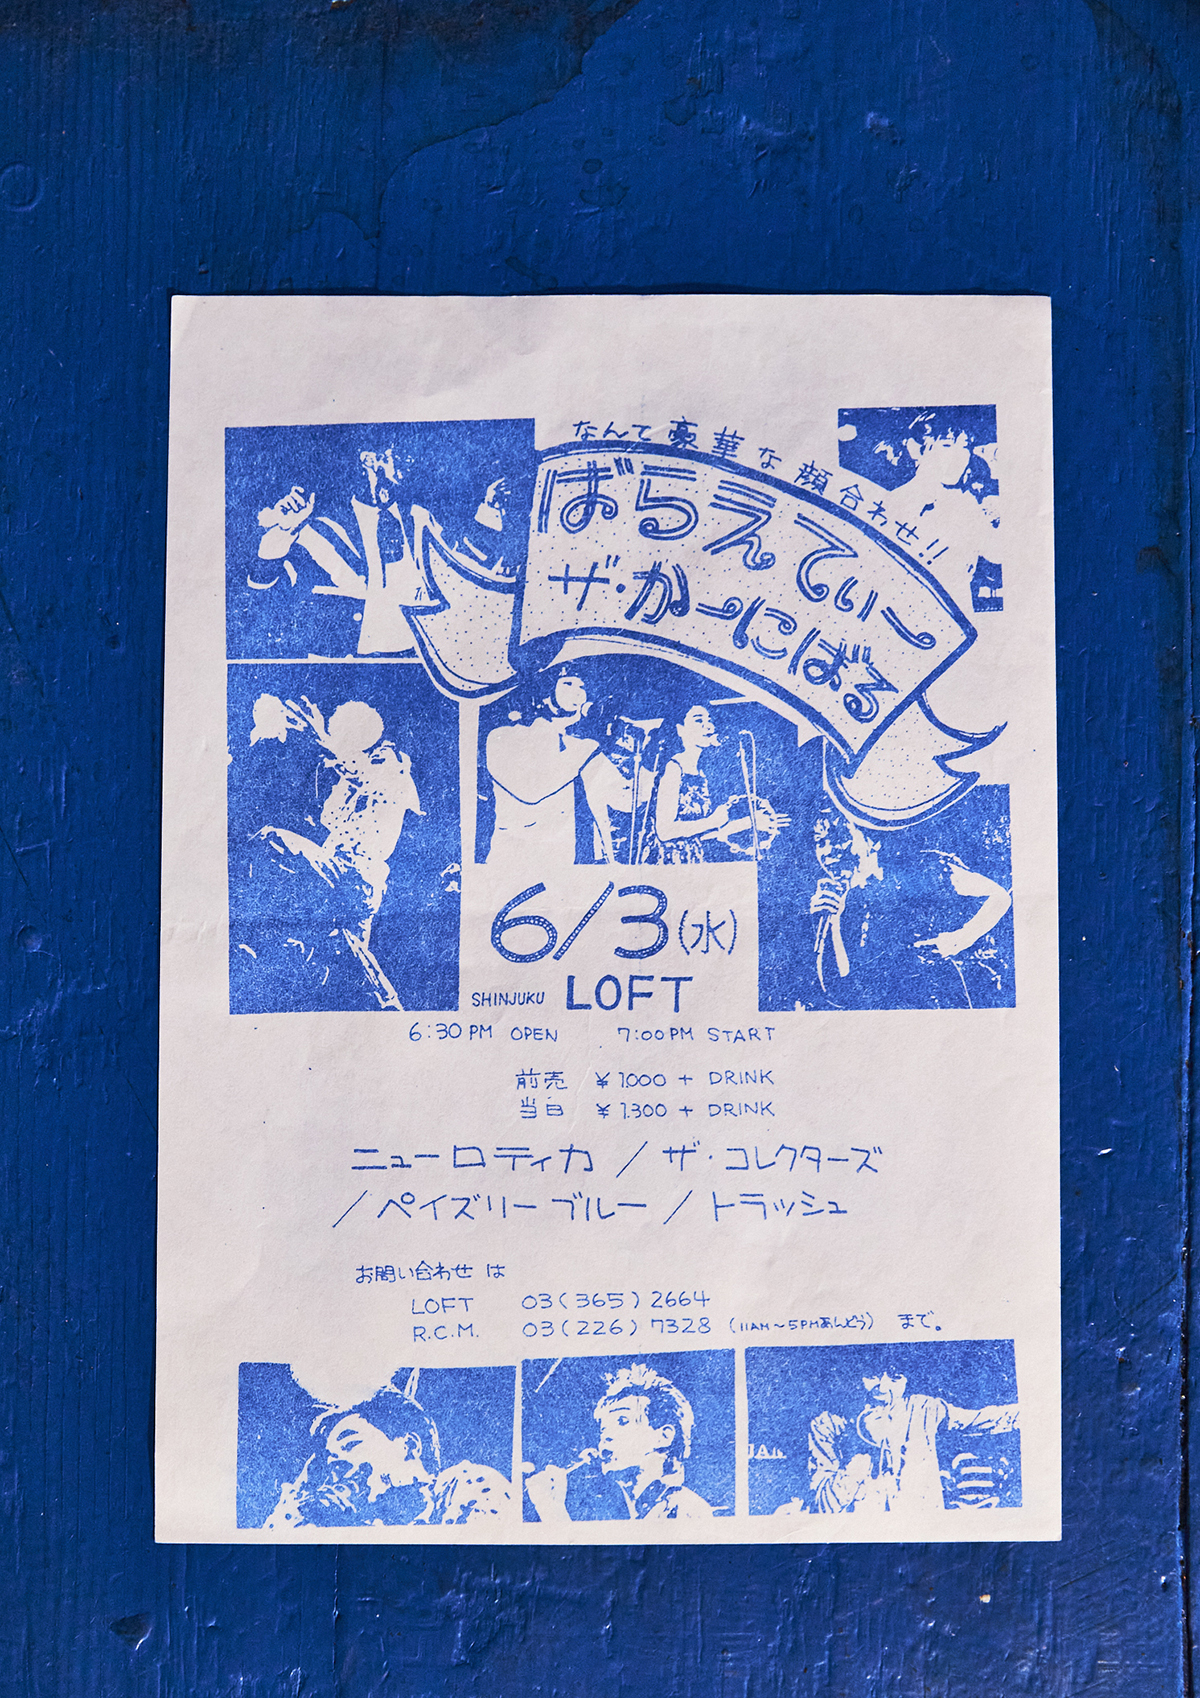 なんて豪華な顔合わせ!!
ばらえてぃー
ザ・かーにばる
6/3(水)
SHINJUKU LOFT
6:30PM OPEN 7:00PM START
前売 ¥1.000 + DRINK
当日 ¥1.300 + DRINK
ニューロティカ / ザ・コレクターズ
/ ペイズリーブルー / トラッシュ
お問い合わせは
LOFT 03(365)2664
R.C.M. 03(226)7328 (11AM〜5PMあんどう) まで。
JAM